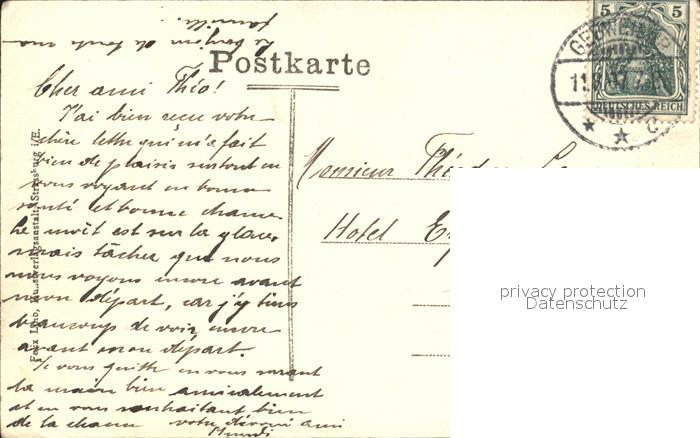 Le bonjour de toute ma
famille.
Postkarte
5 5
GEBWEILER
11.
DEUTSCHES REICH
c
Cher ami Théo!
J'ai bien reçu votre
chère lettre qui m'a fait
bien de plaisir surtout en
vous voyant en bonne
santé et bonne chance
est sur la glace,
mais tâcher que nous
nous voyons encore avant
mon départ, car j'y tiens
beaucoup de voir encore
avant mon départ.
Je vous quitte en vous serrant
la main bien amicalement
et en vous souhaitant bien
de la chance votre dévoué ami
Monsieur
Hotel
Felix Luib, Kunstverlagsanstalt, Strassburg i/E.
privacy protection
Datenschutz